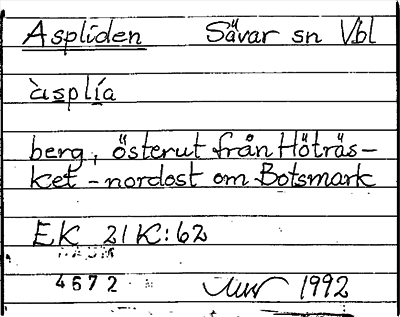 Aspliden Sävar sn Vbl
àsplía
berg, österut från Höträs-
ket - nordost om Botsmark
EK 21K:62
4672 1992